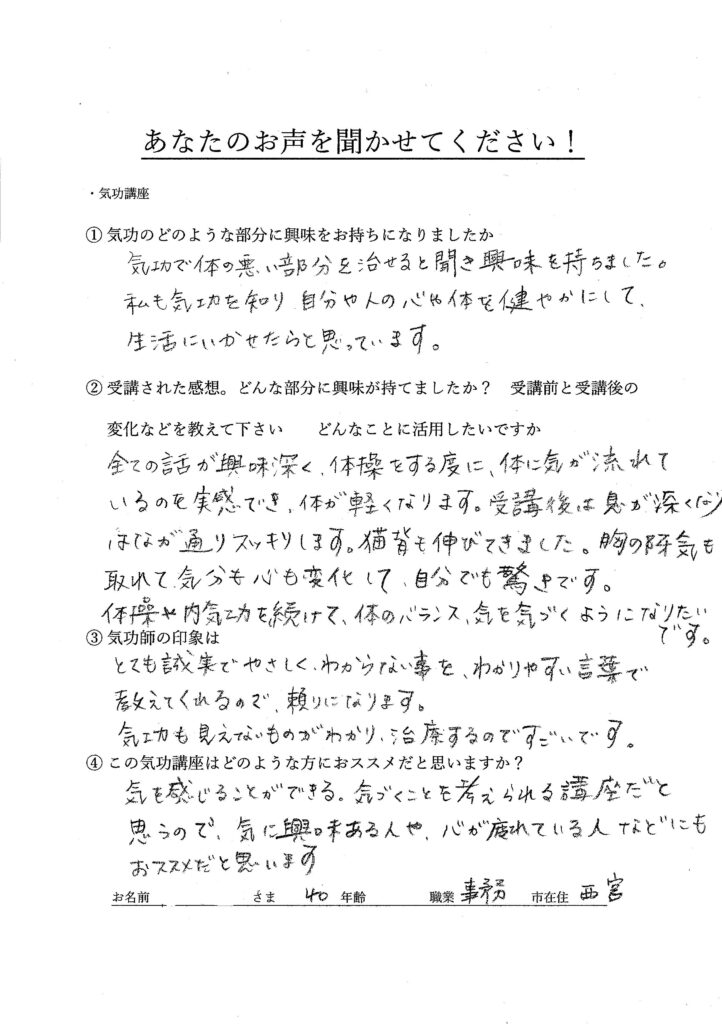 あなたのお声を聞かせてください！
・気功講座
①気功のどのような部分に興味をお持ちになりましたか
気功で体の悪い部分を治せると聞き興味を持ちました。
私も気功を知り 自分や人の心や体を健やかにして、
生活にいかせたらと思っています。
②受講された感想。どんな部分に興味が持てましたか？　受講前と受講後の
変化などを教えて下さい　　どんなことに活用したいですか
全ての話が興味深く、体操をする度に、体に気が流れて
いるのを実感でき、体が軽くなります。受講後は息が深くなり
はなが通りスッキリします。猫背も伸びてきました。胸の邪気も
取れて、気分も心も変化して、自分でも驚きです。
体操や内気功を続けて、体のバランス、気を気づくようになりたい
です。
③気功師の印象は
とても誠実でやさしく、わからない事を、わかりやすい言葉で
教えてくれるので、頼りになります。
気功も見えないものがわかり、治療するのですごいです。
④この気功講座はどのような方におススメだと思いますか？
気を感じることができる。気づくことを考えられる講座だと
思うので、気に興味ある人や、心が疲れている人などにも
おススメだと思います
お名前　　　　さま　40 年齢　　職業 事務　市在住 西宮